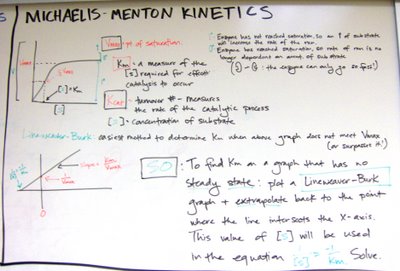 MICHAELIS-MENTON KINETICS
Vmax: pt of saturation.
Enzyme has not reached saturation, so an ↑ of substrate
will increase the rate of the rxn.
Enzyme has reached saturation, so rate of rxn is no
longer dependent on amount of substrate
the enzyme can only go so fast!)
Km: a measure of the
[S] required for effect
catalysis to occur
½ Vmax
[S] = Km
[S]
Kcat: turnover # - measures
the rate of the catalytic process
[S]: concentration of substrate
Lineweaver-Burk: easiest method to determine Km when above graph does not meet Vmax
(or surpasses it!)
slope = Km
Vmax
1
Vmax
0
SO: To find Km on a graph that has no
steady state: plot a Lineweaver-Burk
graph + extrapolate back to the point
where the line intersects the X-axis.
This value of [S] will be used
in the equation 1/[S] = -1/Km. Solve.